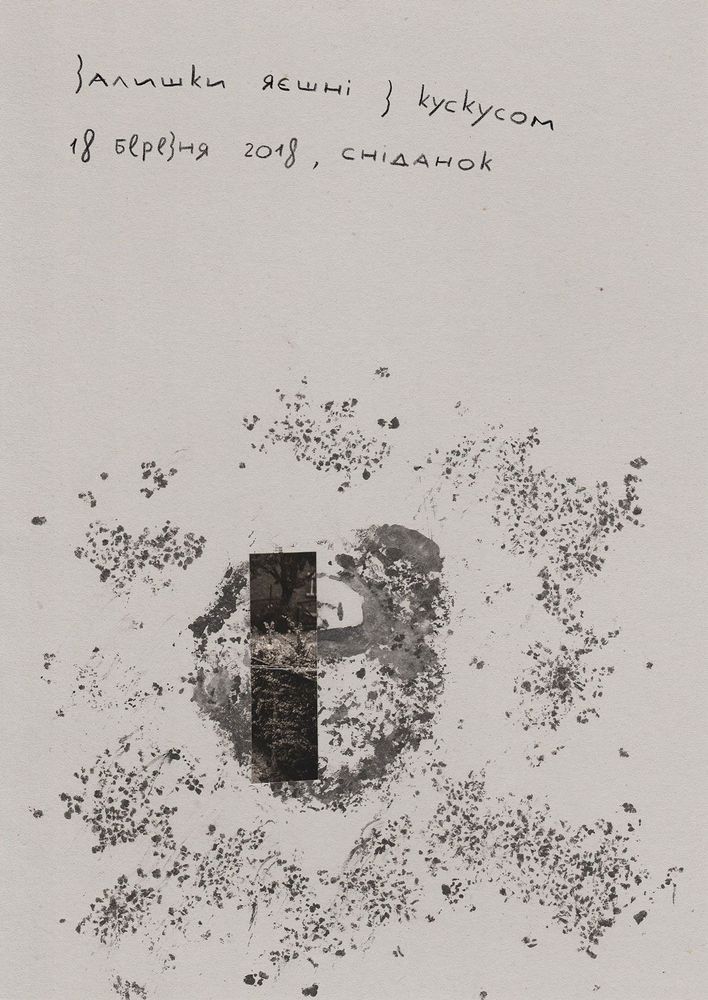 Залишки яєшні з кускусом
18 березня 2018, сніданок